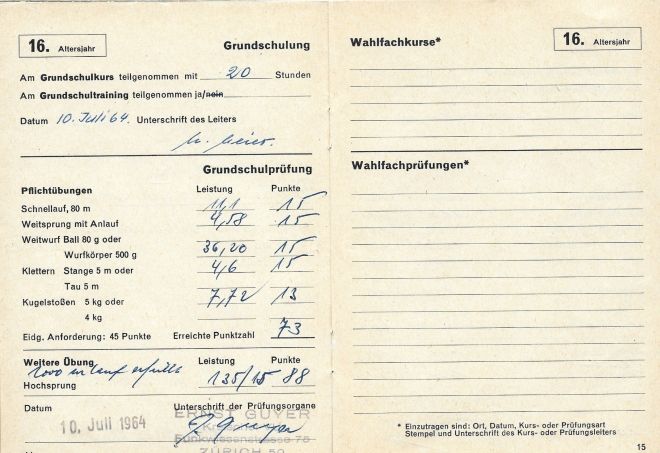 16. Altersjahr Grundschulung
Am Grundschulkurs teilgenommen mit 20 Stunden
Am Grundschultraining teilgenommen ja/nein
Datum 10. Juli 64. Unterschrift des Leiters
Grundschulprüfung
Pflichtübungen Leistung Punkte
Schnellauf, 80 m 11,1 15
Weitsprung mit Anlauf 4,58 15
Weitwurf Ball 80 g oder
Wurfkörper 500 g 36,20 15
Klettern Stange 5 m oder 4,6 15
Tau 5 m
Kugelstoßen 5 kg oder 7,72 13
4 kg
Eidg. Anforderung: 45 Punkte Erreichte Punktzahl 73
Weitere Übung Leistung Punkte
1000 m Lauf erfüllt
Hochsprung 135/15 88
Datum Unterschrift der Prüfungsorgane
10. Juli 1964 ERNST GUYER
ZÜRICH 50
Wahlfachkurse* 16. Altersjahr
Wahlfachprüfungen*
* Einzutragen sind: Ort, Datum, Kurs- oder Prüfungsart
Stempel und Unterschrift des Kurs- oder Prüfungsleiters
15